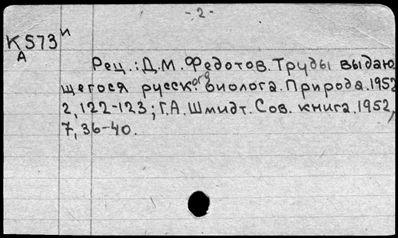 - 2 -
К573и
А
Рец.: Д.М. Федотов. Труды выдаю
щегося русск ого биолога. Природа. 1952
2, 122-123; Г.А. Шмидт. Сов. книга. 1952,
7, 36-40.